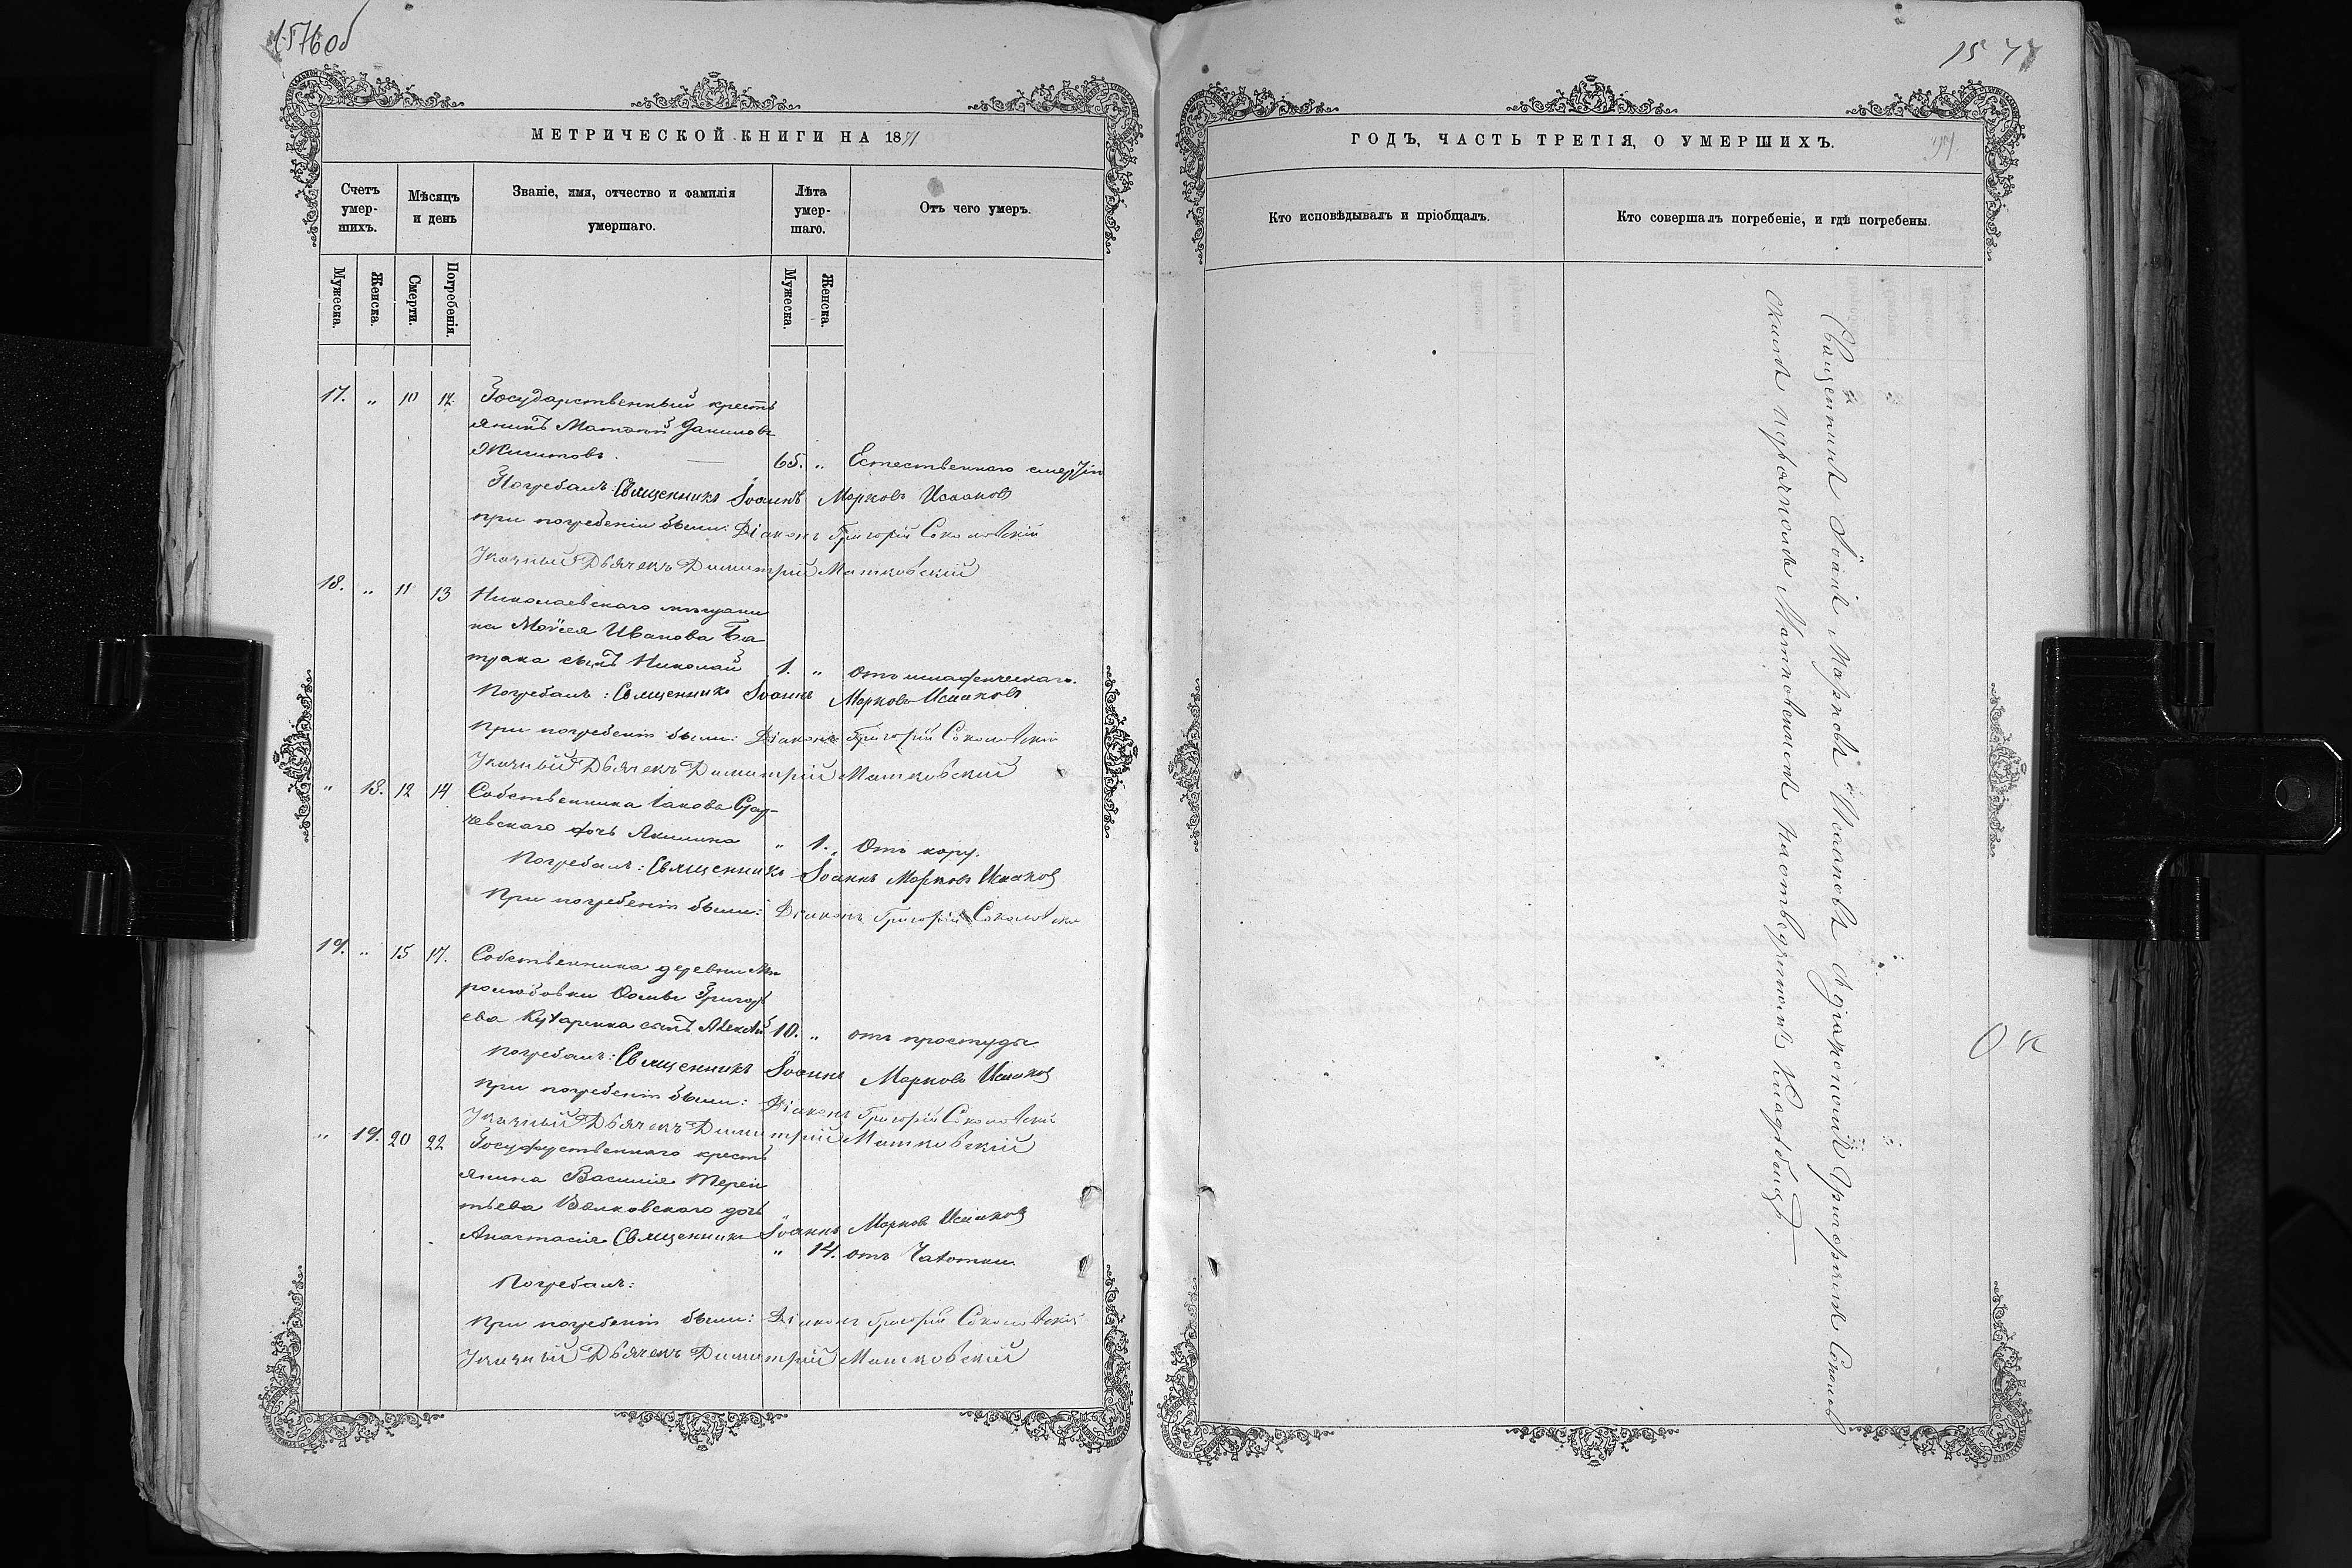 1576об
МЕТРИЧЕСКОЙ КНИГИ НА 1871
Счетъ умер-шихъ.
Мѣсяцъ и день
Званіе, имя, отчество и фамилія умершаго.
Лѣта умер-шаго.
Отъ чего умеръ.
Мужеска.
Женска.
Смерти.
Погребенія.
Мужеска.
Женска.
17. „ 10 12. Государственный кресть
янинъ Данилов
65. „ Естественнаго
Погребалъ: Священникъ Іоаннъ Марковъ Исааковъ
при погребеніи были: Діаконъ Григорій Соколовскій
Указный Дьячекъ Димитрій Матковскій
18. „ 11 13 Николаевскаго мѣщани
на Моисея Иванова Ба
трака сынъ Николай 1. „ отъ
Погребалъ: Священникъ Іоаннъ Марковъ Исааковъ
При погребеніи были: Діаконъ Григорій Соколовскій
Указный Дьячекъ Димитрій Матковскій
„ 18. 12 14 Собственника Іакова
чевскаго дочь Акилина „ 1. Отъ кору.
Погребалъ: Священникъ Іоаннъ Марковъ Исааковъ
При погребеніи были: Діаконъ Григорій Соколовскі
19. „ 15 17. Собственника деревни Ми
ролюбовки Ѳомы Григорь
ева сынъ Алексѣй 10. „ отъ простуды
Погребалъ: Священникъ Іоаннъ Марковъ Исааковъ
При погребеніи были: Діаконъ Григорій Соколовскій
Указный Дьячекъ Димитрій Матковскій
„ 19. 20 22 Государственнаго кресть
янина Василія Терен
тьева Волковскаго дочь
Анастасія Священникъ Іоаннъ Марковъ Исааковъ
„ 14. отъ Чахотки.
Погребалъ:
При погребеніи были: Діаконъ Григорій Соколовскій
Указный Дьячекъ Димитрій Матковскій
1577
ГОДЪ, ЧАСТЬ ТРЕТІЯ, О УМЕРШИХЪ.
Кто исповѣдывалъ и пріобщалъ.
Кто совершалъ погребеніе, и гдѣ погребены.
Священникъ Іоаннъ Марковъ Исааковъ съ діакономъ Григоріемъ Соколов
скимъ и Матковскимъ на отведенномъ кладбищѣ
ОК